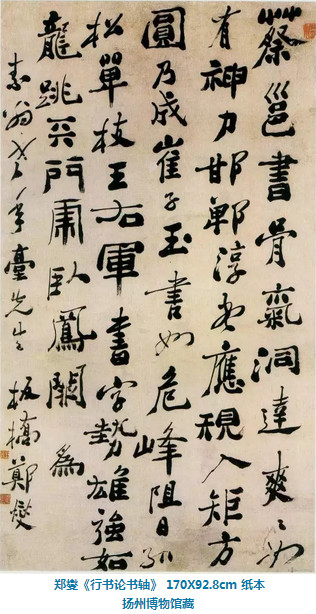 蔡邕書骨氣洞達爽〻如
有神力邯鄲淳書應規入矩方
圓乃成崔子玉書如危峰阻日孤
松單枝王右軍書字勢雄強如
龍跳天門虎臥鳳闕 為
素翁老年臺先生 板橋鄭燮
郑燮《行书论书轴》 170X92.8cm 纸本
扬州博物馆藏